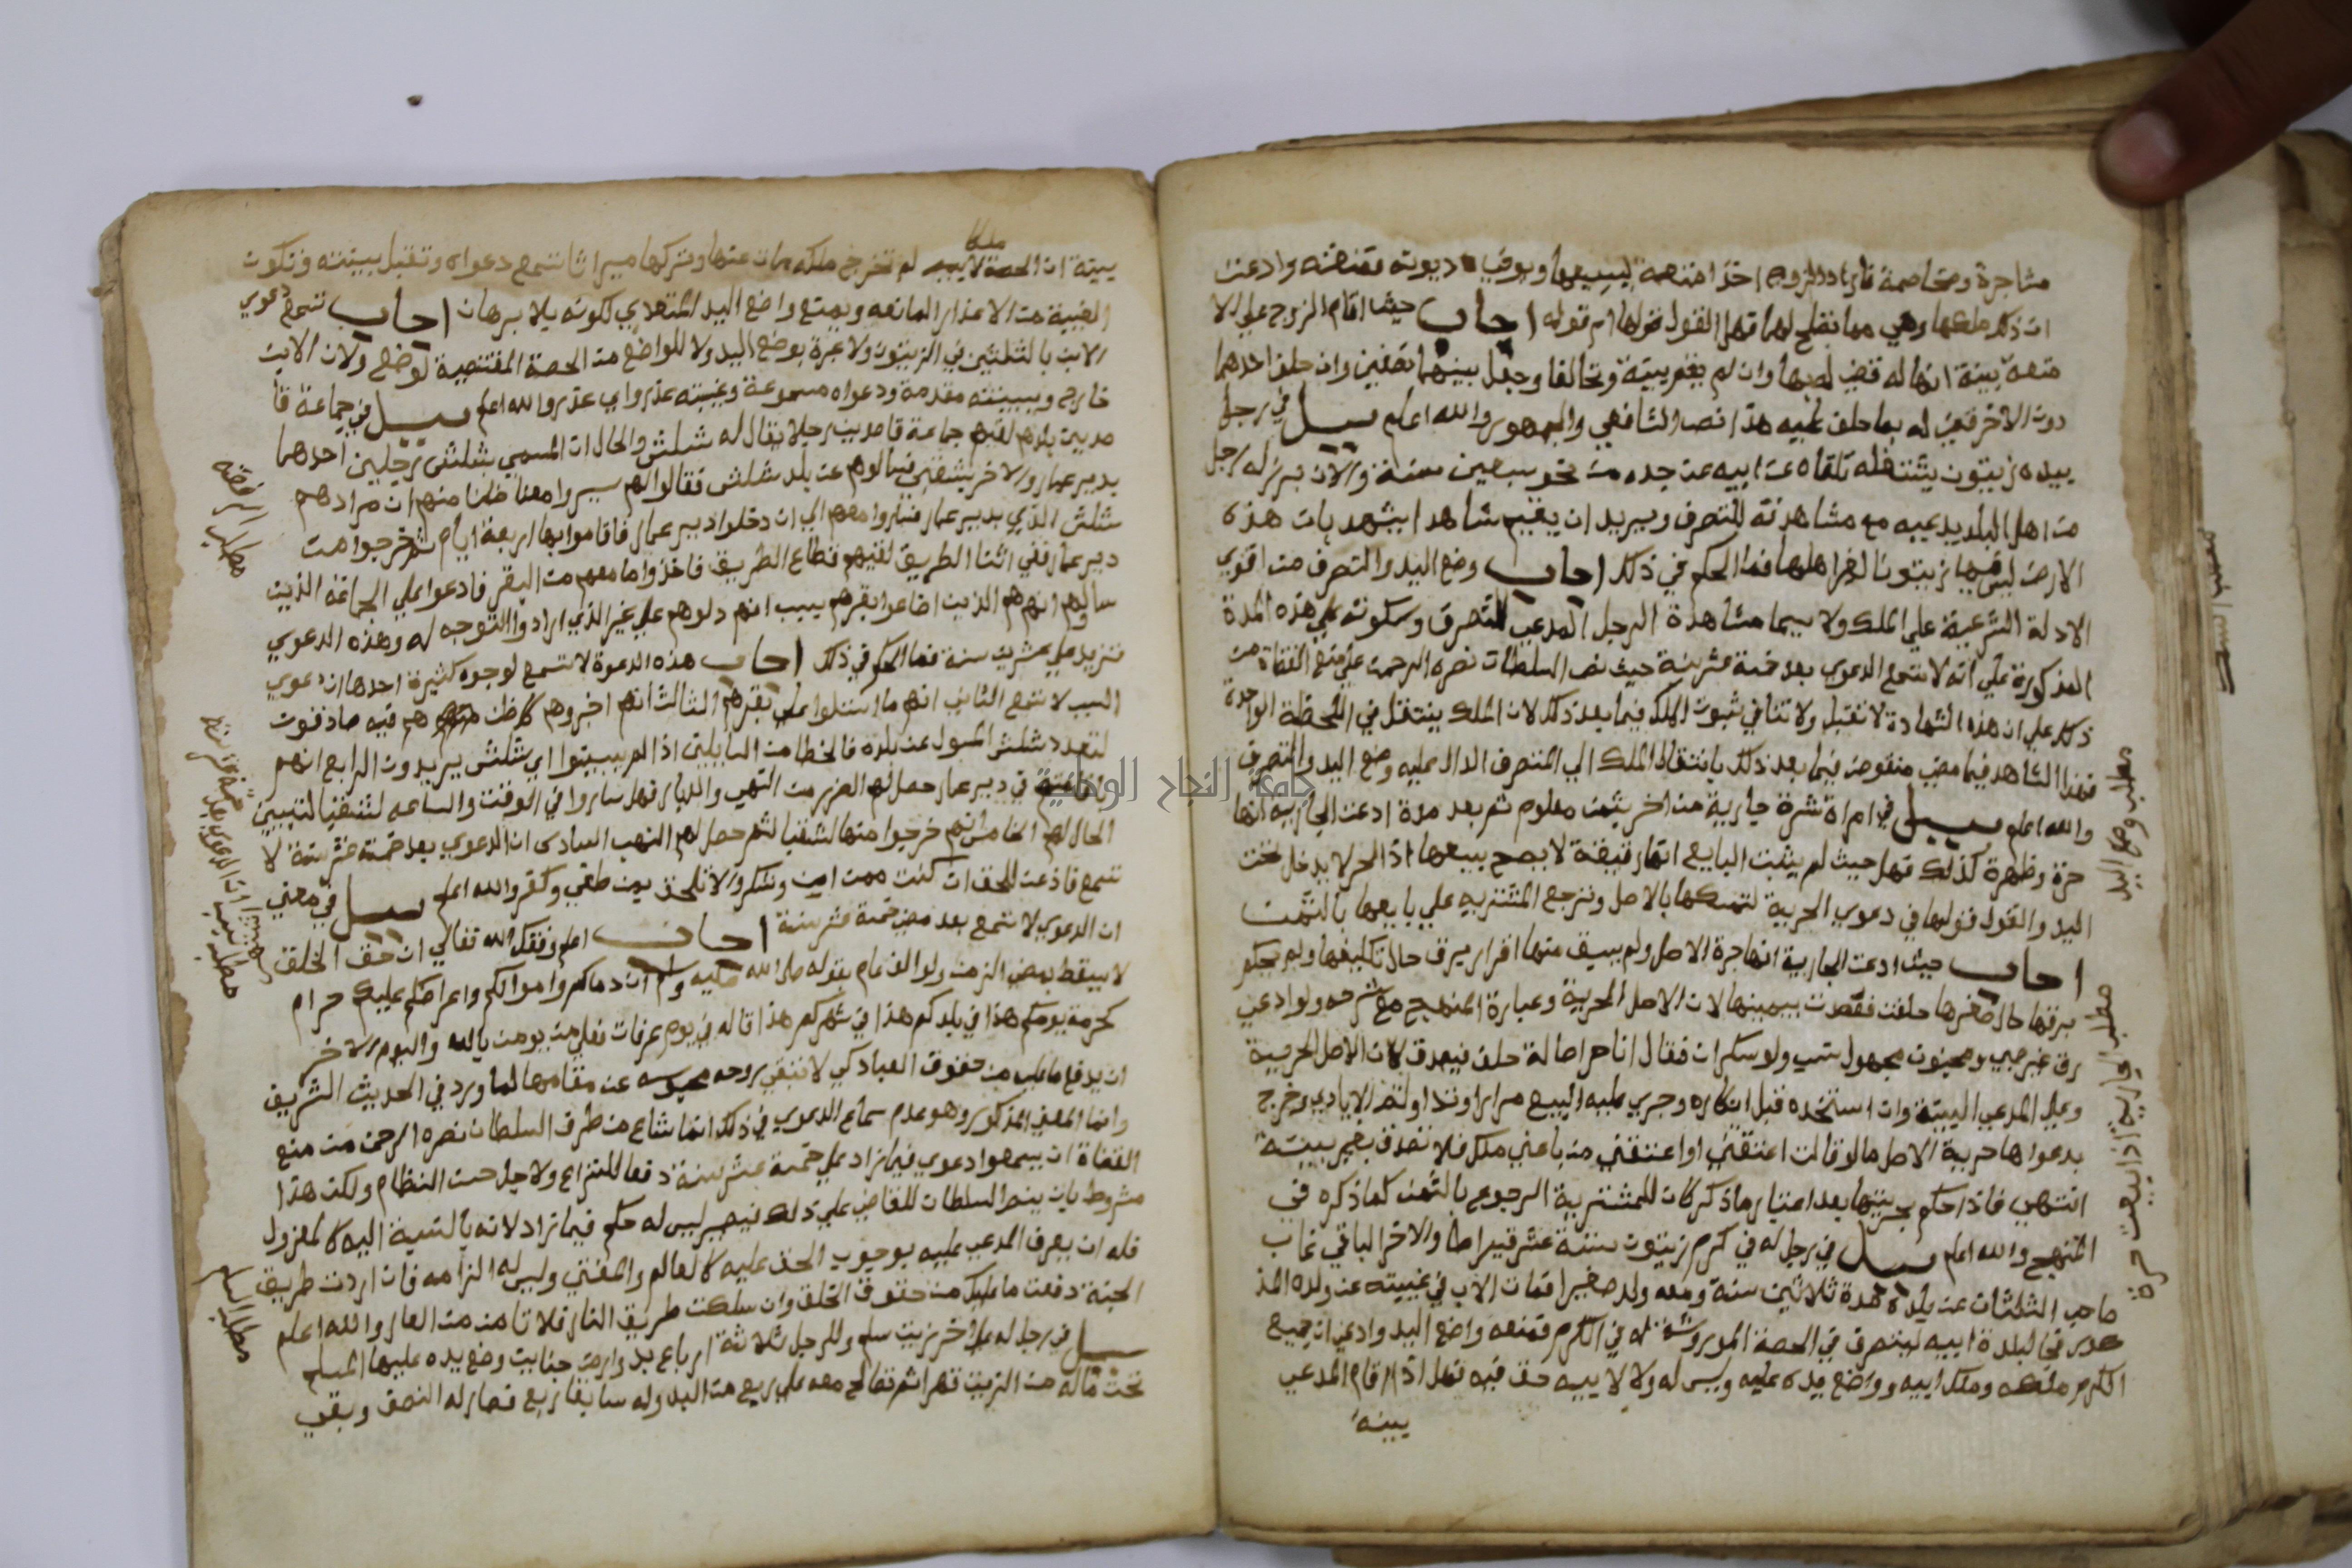 مشاجرة ومخاصمة فاراد الزوج اخذ امتعة ليبيعها ويوفي ديونه فمنعته وادعت
ان ذلك ملكها وهي مما يصلح لهما فهل القول قولها ام قوله اجاب حيث اقام الزوج علي الا
متعة بينة انها له قضي له بها وان لم يقم بينة وتحالفا وجعل بينهما نصفين وان حلف احدهما
دون الاخر قضي له بما حلف عليه هذا نص الشافعي والجمهور والله اعلم سيل في رجل
بيده زيتون يشتغله تلقاه عن ابيه عن جده من نحو سبعين سنة والان برز له رجل
من اهل البلد يدعيه مع مشاهدته للتصرف ويريد ان يقيم شاهدا يشهد بان هذه
الارض ليس فيها زيتونا لغير اهلها فما الحكم في ذلك اجاب وضع اليد والتصرف من اقوي
الادلة الشرعية علي الملك ولا سيما مشاهدة الرجل المدعي للتصرف وسكوته علي هذه المدة
المذكورة علي انه لا تسمع الدعوي بعد خمسة عشر سنة حيث نص السلطان نصره الرحمن علي منع القضاة من
ذلك علي ان هذه الشهادة لا تقبل ولا تنافي ثبوت الملك فيما بعد ذلك لان الملك ينتقل في اللحظة الواحدة
فهذا الشاهد فيما مضي منقوض فيما بعد ذلك بانتقال الملك الي المتصرف الدال عليه وضع اليد والتصرف
والله اعلم سيل في امراة شرة جارية من اخر بثمن معلوم ثم بعد مدة ادعت الجارية انها
حرة وظهرة كذلك فهل حيث لم يثبت البايع انها رقيقة لا يصح بيعها اذ الحر لا يدخل تحت
اليد والقول قولها في دعوي الحرية لتمسكها بالاصل وترجع المشترية علي بايعها بالثمن
اجاب حيث ادعت الجارية انها حرة الاصل ولم يسبق منها اقرار برق حال تكليفها ولم يحكم
برقها حال صغرها حلفت فصدقت بيمينها لان الاصل الحرية وعبارة المنهج مع شرحه ولو ادعي
رق غير صبي ومجنون مجهول نسب ولو سكران فقال انا حر اصالة حلف فيصدق لان الاصل الحرية
وعلي المدعي البينة وان استخدمه قبل انكاره وجري عليه البيع مرارا وتداولته الايادي وخرج
بدعواها حرية الاصل ما لو قالت اعتقني او اعتقني من باعني ملك فلا تصدق بغير بينة
انتهي فاذا حكم بحريتها بعد اعتبار ما ذكر كان للمشترية الرجوع بالثمن كما ذكره في
المنهج والله اعلم سيل في رجل له في كرم زيتون ستة عشر قيراطا والاخر الباقي غاب
صاحب الثلثان عن بلده مدة ثلاثين سنة ومعه ولد صغير فمات الاب في غيبته عن ولده
في الحصة في الكرم فمنعه واضع اليد وادعي ان جميع
الكرم ملكه وملك ابيه وواضع يده عليه وليس له ولا لابيه حق فيه فهل اذا اقام المدعي
بينة
مطلب وضع اليد
مطلب
بينة ان الحصة لابيه ملكا لم تخرج ملكه مات عنها وتركها ميراثا تسمع دعواه وتقبل بينته وتكون
الغيبة من الاعذار المانعه ويمنع واضع اليد المتعدي لكونه بلا برهان اجاب تسمع دعوي
الابن بالثلثين في الزيتون ولا عبرة بوضع اليد ولا للواضع من الحصة المقتضية لوضع ولان الابن
خارج وبينته مقدمة ودعواه مسموعة وغيبته عذر واي عذر والله اعلم سيل في جماعة قا
صدين بلدهم لقيهم جماعة قاصدين رجلا يقال له شلش والحال ان المسمي بشلش رجلين احدهما
بدير عمار والاخر بشقبي فسالوهم عن بلد شلش فقالوا لهم سيروا معنا ظنا منهم ان مرادهم
شلش الذي بدير عمار فساروا معهم الي ان دخلوا دير عمار فاقاموا بها اربعة ايام ثم خرجوا من
دير عمار ففي اثنا الطريق لقيهم قطاع الطريق فاخذوا ما معهم من البقر فادعوا علي الجماعة الذين
سالوهم انهم هم الذين اضاعوا بقرهم بسبب انهم دلوهم علي غير الذي ارادوا التوجه له وهذه الدعوي
تزيد علي عشرين سنة فما الحكم في ذلك اجاب هذه الدعوة لا تسمع لوجوه كثيرة احدها ان دعوي
السبب لا تسمع الثاني انهم ما استولوا علي بقرهم الثالث انهم اخبروهم كما ظن هم فيه صادقون
لتعدد شلش المسول عن بلده فالخطا من السايلين اذا لم يبينوا اي شلش يريدون الرابع انهم
في دير عمار حصل لهم العزيز من النهب والديار فهل ساروا في الوقت والساعه لشقبا لتبيين
الحال لهم الخامس انهم خرجوا منها لشقبا ثم حصل لهم النهب السادس ان الدعوي بعد خمسة عشر سنة لا
تسمع فاذعن للحق ان كنت ممن امين وشكر ولا تلحق بمن طغي وكفر والله اعلم سيل في معني
ان الدعوي لا تسمع بعد مضي خمسة عشر سنة اجاب اعلم وفقك الله تعالي ان حق الخلق
لا يسقط بمضي الزمن ولو الف عام بقوله صلي الله عليه وسلم ان دماكم واموالكم واعراضكم عليكم حرام
كحرمة يومكم هذا في بلدكم هذا في شهركم هذا قاله في يوم عرفات فعلي من يومن بالله واليوم الاخر
ان يدفع ما عليه من حقوق العباد كي لا تبقي روحه محبوسه عن مقامها لما ورد في الحديث الشريف
وانما المعني المذكور وهو عدم سماع الدعوي في ذلك انما شاع من طرف السلطان نصره الرحمن من منع
القضاة ان يسمعوا دعوي فيما زاد علي خمسة عشر سنة دفعا للنزاع ولاجل حسن النظام ولكن هذا
مشروط بان ينص السلطان للقاضي علي ذلك فيصير ليس له حكم فيما زاد لانه بالنسبة اليه كالمعزول
فله ان يعرف المدعي عليه بوجوب الحق عليه كالعالم والمفتي وليس له الزامه فان اردت طريق
الجنة دفعت ما عليك من حقوق الخلق وان سلكت طريق النار فلا تامن من العار والله اعلم
سيل في رجل له علي اخر زيت سلم وللرجل ثلاثة ارباع بد وارض جنابت وضع يده عليها المسلم
تحت ماله من الزيت قهرا ثم تصالح معه علي ربع من البد وله سابقا ربع فصار له النصف وبقي
مطلب
مطلب السلم